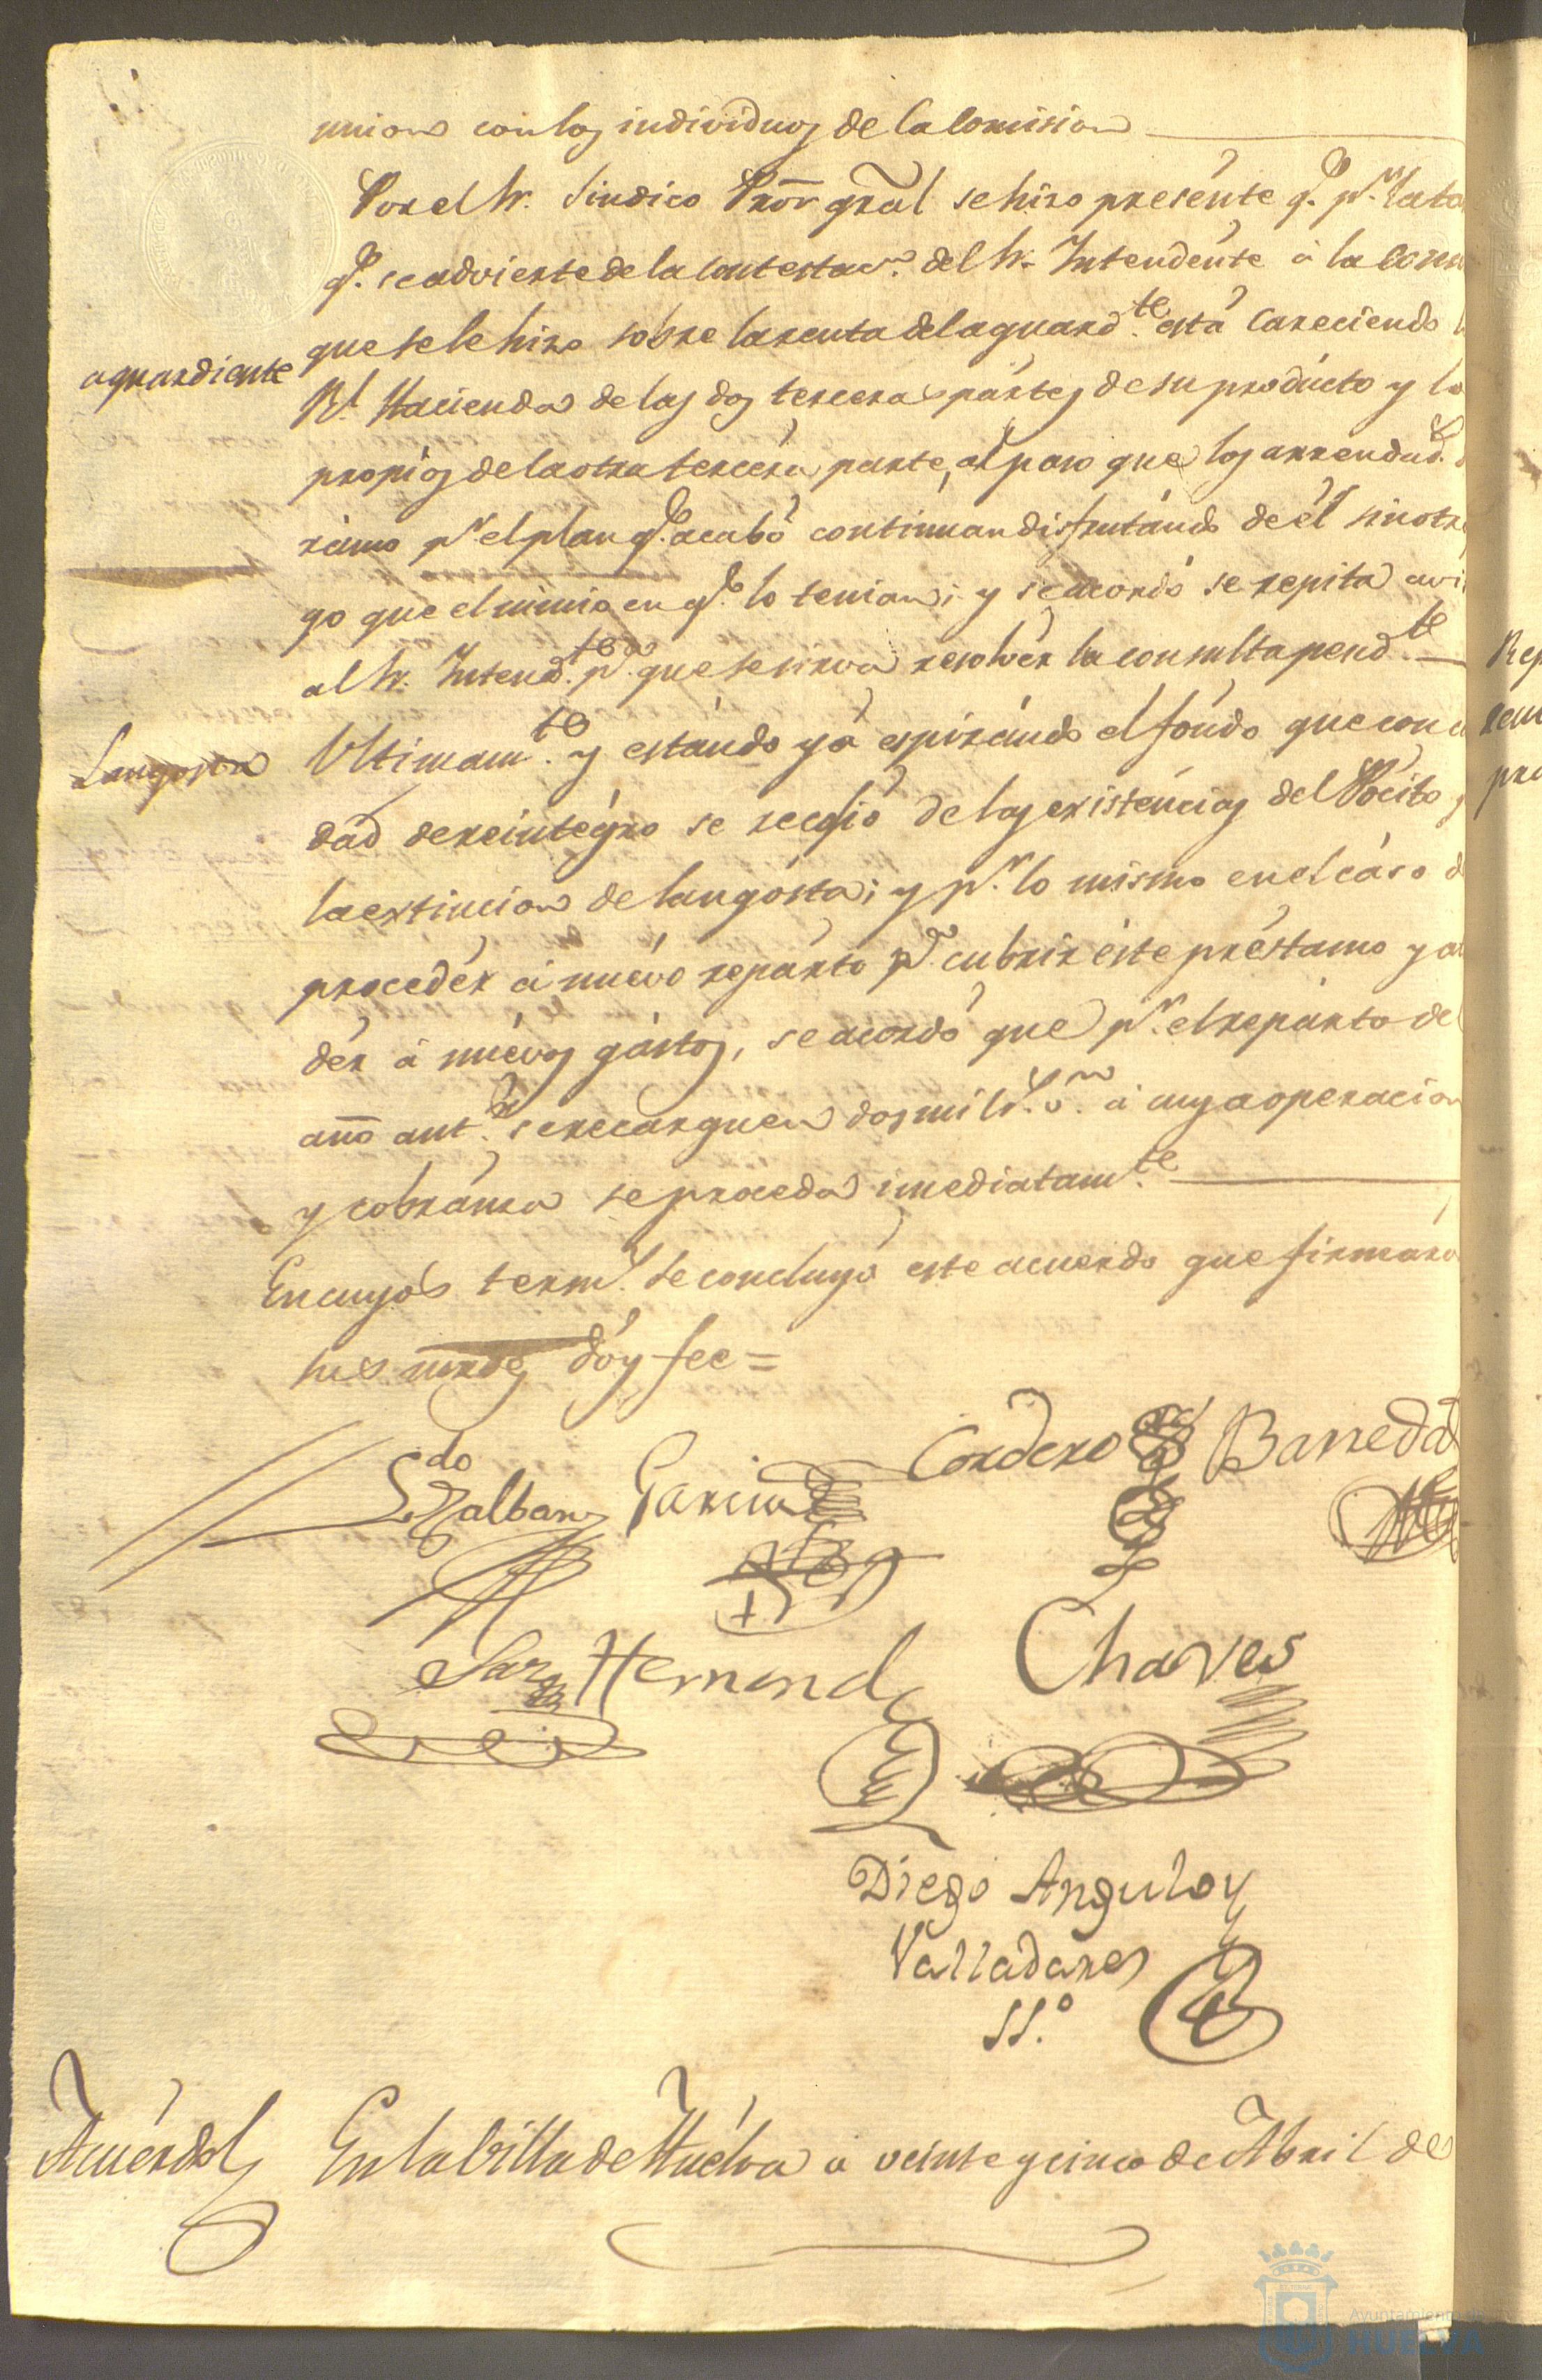 union con los individuos de la Comision
Por el Sr. Sindico Pror. gral se hizo presente q.e p.r la
q.e se advierte de la Contestac.n del Sr. Intendente á la
que se le hizo sobre la renta del aguard.te está Careciendo
aguardiente
Rl. Hacienda de las dos terceras partes de su producto y
propios de la otra tercera parte, al paso que los arrendad.s
ramo p.r el plan q.e acabó continuan disfrutando de él sin
go que el mismo en q.e lo tenian; y se acordó se repita
al Sr. Intend.te p.a que se sirva resolver la consulta pend.te
Langosta
Ultimam.te y estando yá espirando el fondo que con
dad de reintegro se recojió de las existencias del Pocito
la extincion de langosta; y p.r lo mismo en el caso
proceder á nuevo reparto p.a cubrir este préstamo y
der á nuevos gastos, se acordó que p.r el reparto del
año ant.r se recarguen dos mil r.s v.n á cuya operacion
y cobranza se proceda imediatam.te
En cuyos term.s se concluyó este acuerdo que firmaron
sus mrdes doy fee=
L.do Zalbary Garcia Cordero Barreda
Hernand.z Chaves
Diego Angulo y
Valladares
SS.o
Acuerdo
En la villa de Huelva a veinte y cinco de Abril de
Ayuntamiento de
HUELVA